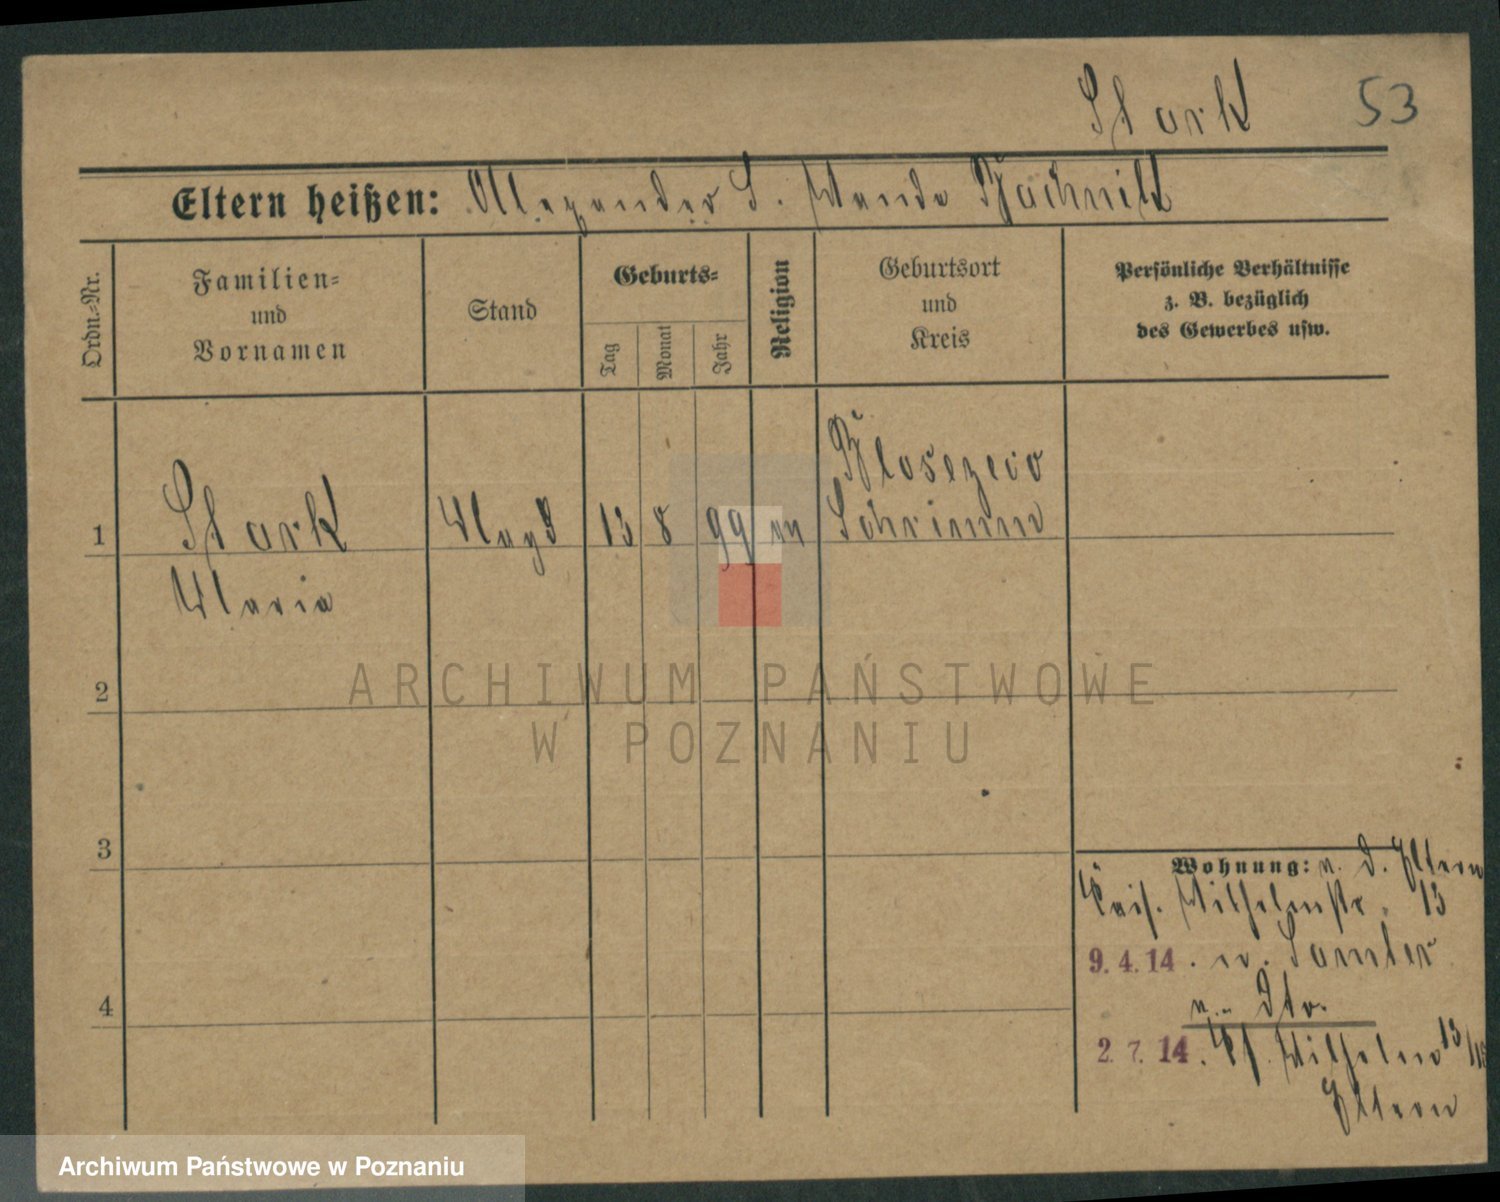 Stark 53
Eltern heißen: Alexander S. Wanda
Ordn.=Nr.
Familien=
und
Vornamen
Stand
Geburts=
Tag
Monat
Jahr
Religion
Geburtsort
und
Kreis
Persönliche Verhältnisse
z. B. bezüglich
des Gewerbes usw.
1 Stark Magd 13 8 99 Schrimm
Maria
2
3
4
Wohnung: v. d. Eltern
Kais. Wilhelmstr. 13
9.4.14. n. Samter
v. dto.
2.7.14. Kf. Wilhelm 13
Eltern
ARCHIWUM PAŃSTWOWE
W POZNANIU
Archiwum Państwowe w Poznaniu